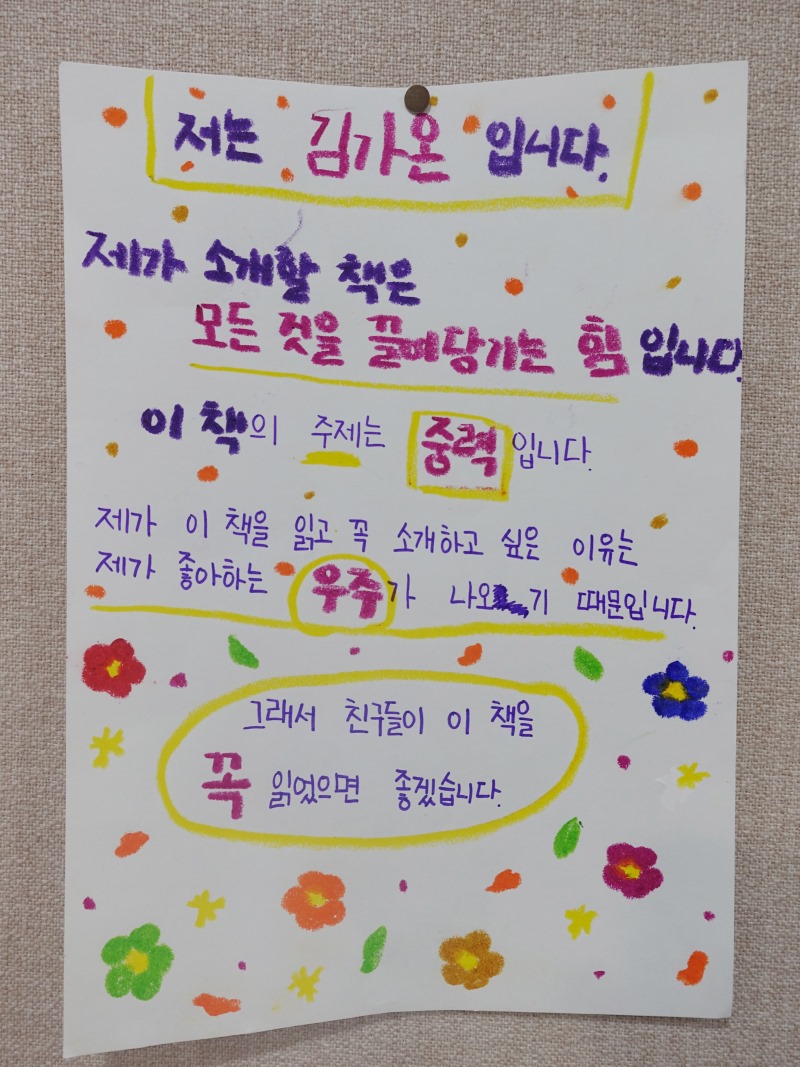 저는 김가온 입니다.
제가 소개할 책은
모든 것을 끌어당기는 힘 입니다.
이 책의 주제는 중력 입니다.
제가 이 책을 읽고 꼭 소개하고 싶은 이유는
제가 좋아하는 우주가 나오기 때문입니다.
그래서 친구들이 이 책을
꼭 읽었으면 좋겠습니다.